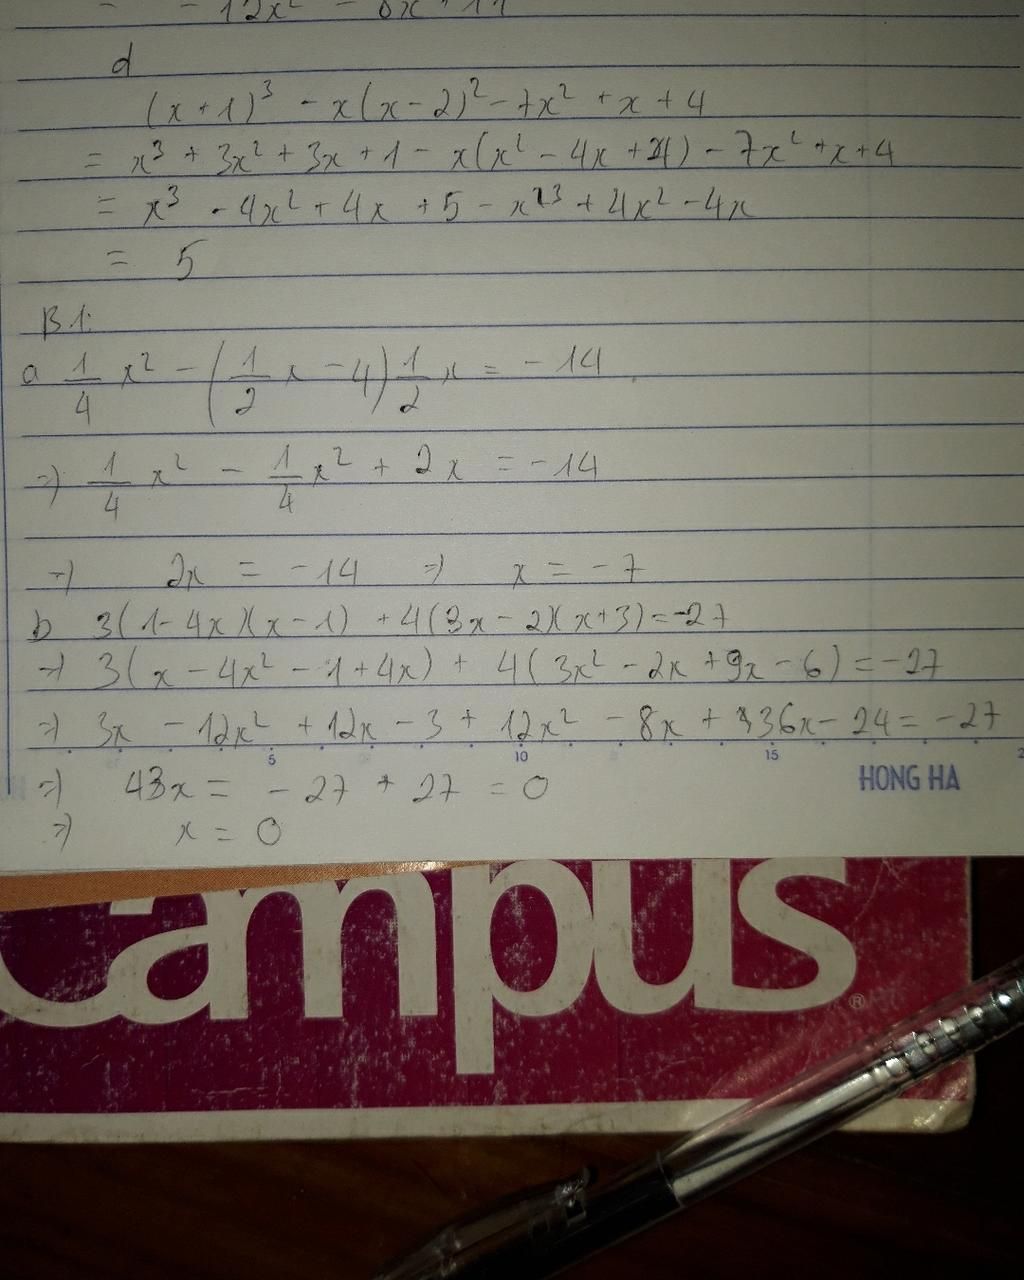 - 12x² - 6x + 11
d
(x + 1)³ - x(x - 2)² - 7x² + x + 4
= x³ + 3x² + 3x + 1 - x(x² - 4x + 4) - 7x² + x + 4
= x³ - 4x² + 4x + 5 - x³ + 4x² - 4x
= 5
B1:
a 1/4 x² - (1/2 x - 4) 1/2 x = - 14
=> 1/4 x² - 1/4 x² + 2x = - 14
=> 2x = - 14 => x = - 7
b 3(1 - 4x)(x - 1) + 4(3x - 2)(x + 3) = -27
=> 3(x - 4x² - 1 + 4x) + 4(3x² - 2x + 9x - 6) = -27
=> 3x - 12x² + 12x - 3 + 12x² - 8x + 36x - 24 = -27
5 10 15
=> 43x = - 27 + 27 = 0
HONG HA
=> x = 0
Campus®